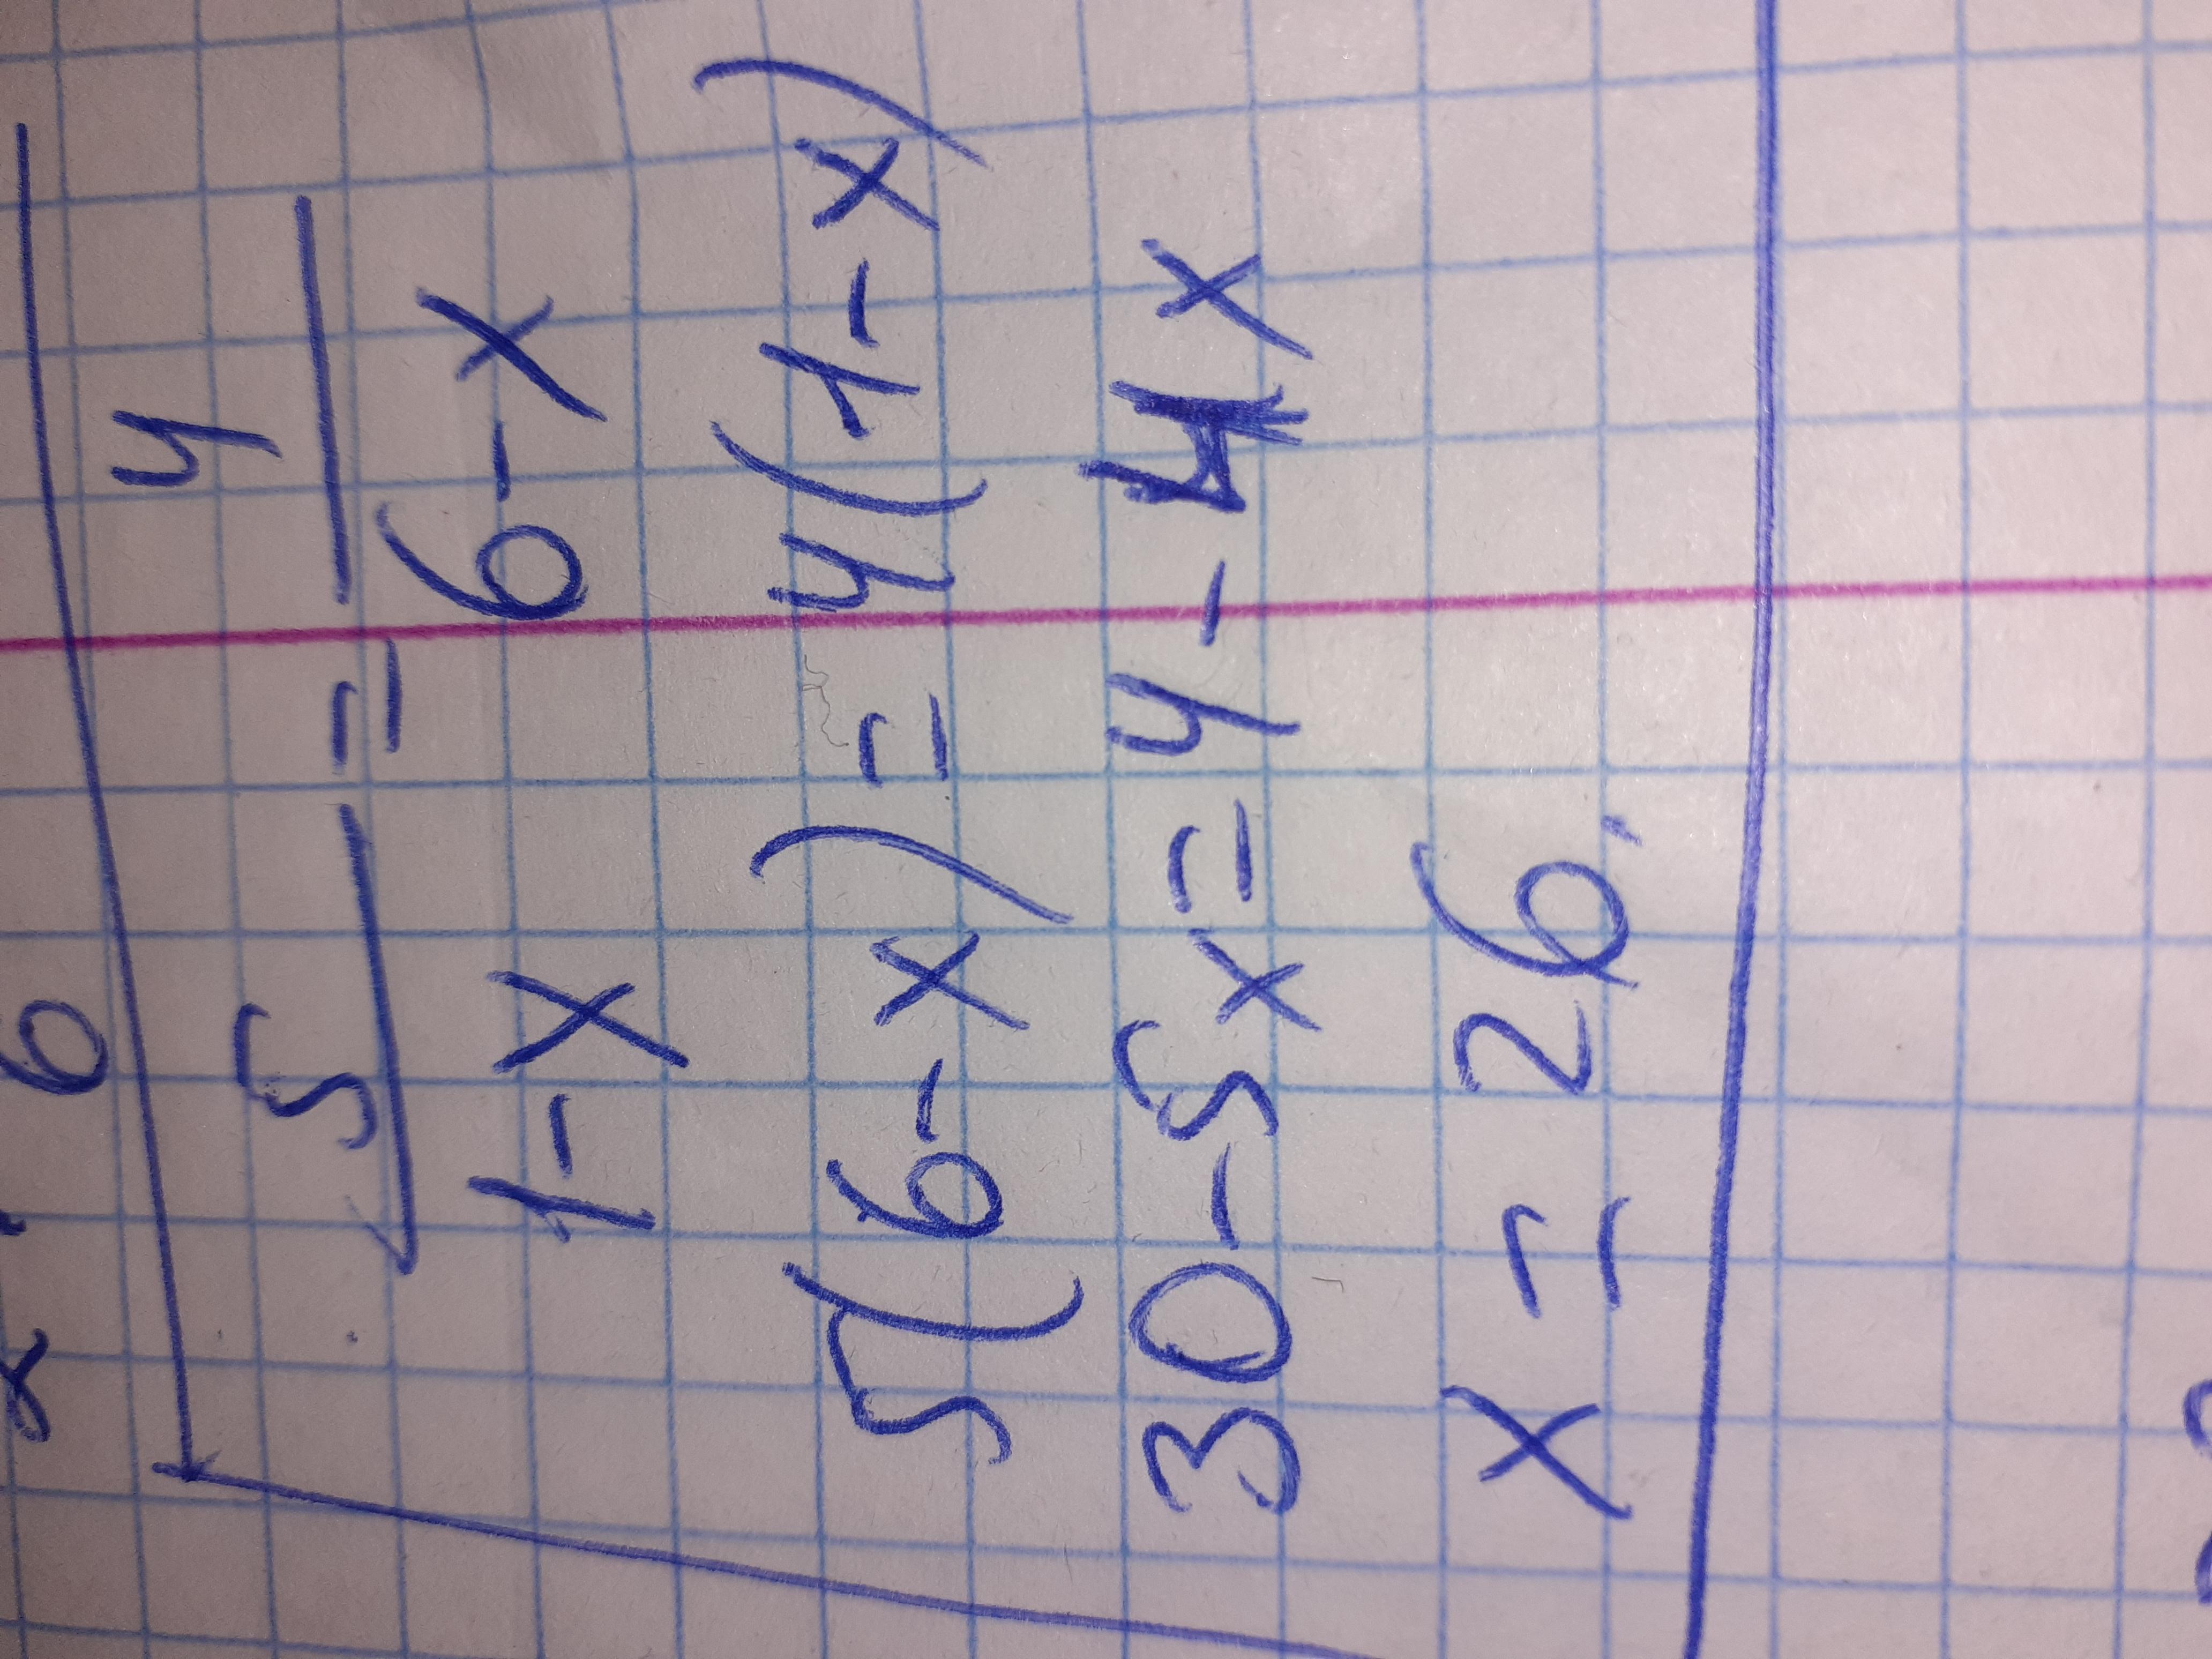 5/(1-x) = 4/(6-x)
5(6-x) = 4(1-x)
30-5x = 4-4x
x = 26